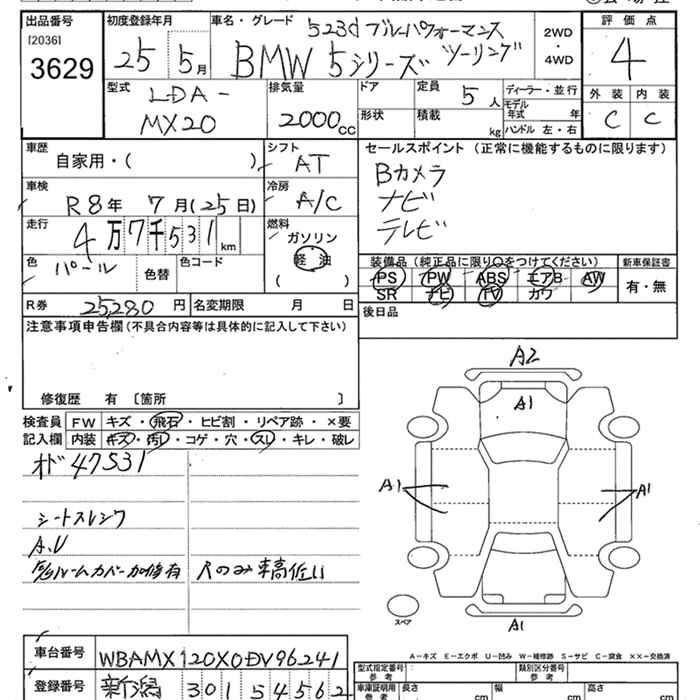 出品番号
[2036]
3629
初度登録年月
25 5月
車名・グレード
523d ブルーパフォーマンス
BMW 5シリーズ ツーリング
2WD
・
4WD
評価点
4
外装 内装
C C
型式
LDA-
MX20
排気量
2000cc
ドア
形状
定員
5人
積載
kg
ディーラー・並行
モデル年式 年
ハンドル 左・右
車歴
自家用・( )
シフト
AT
車検
R8年 7月(25日)
冷房
A/C
走行
4万7千531km
燃料
ガソリン
軽油
( )
色
パール
色替
色コード
R券 25,280円
名変期限 月 日
セールスポイント(正常に機能するものに限ります)
Bカメラ
ナビ
テレビ
装備品(純正品に限り○をつけてください)
PS PW ABS エアB AW
SR ナビ TV カワ
新車保証書
有・無
後日品
注意事項申告欄(不具合内容等は具体的に記入して下さい)
修復歴 有 〔箇所 〕
検査員
記入欄
FW キズ・飛石・ヒビ割・リペア跡・×要
内装 キズ・汚レ・コゲ・穴・スレ・キレ・破レ
オド 47531
シートスレシワ
A.U
ルームカバー加修有
Rのみ車高低い
A2
A1
A1
A1
A1
スペア
A-キズ E-エクボ U-凹み W-補修跡 S-サビ C-腐食 ××-交換済
車台番号 WBAMX120X0DV96241
登録番号 新潟 301 ミ 4562
型式指定番号
参考
類別区分番号
参考
車庫証明用
参考
長さ cm
幅 cm
高さ cm